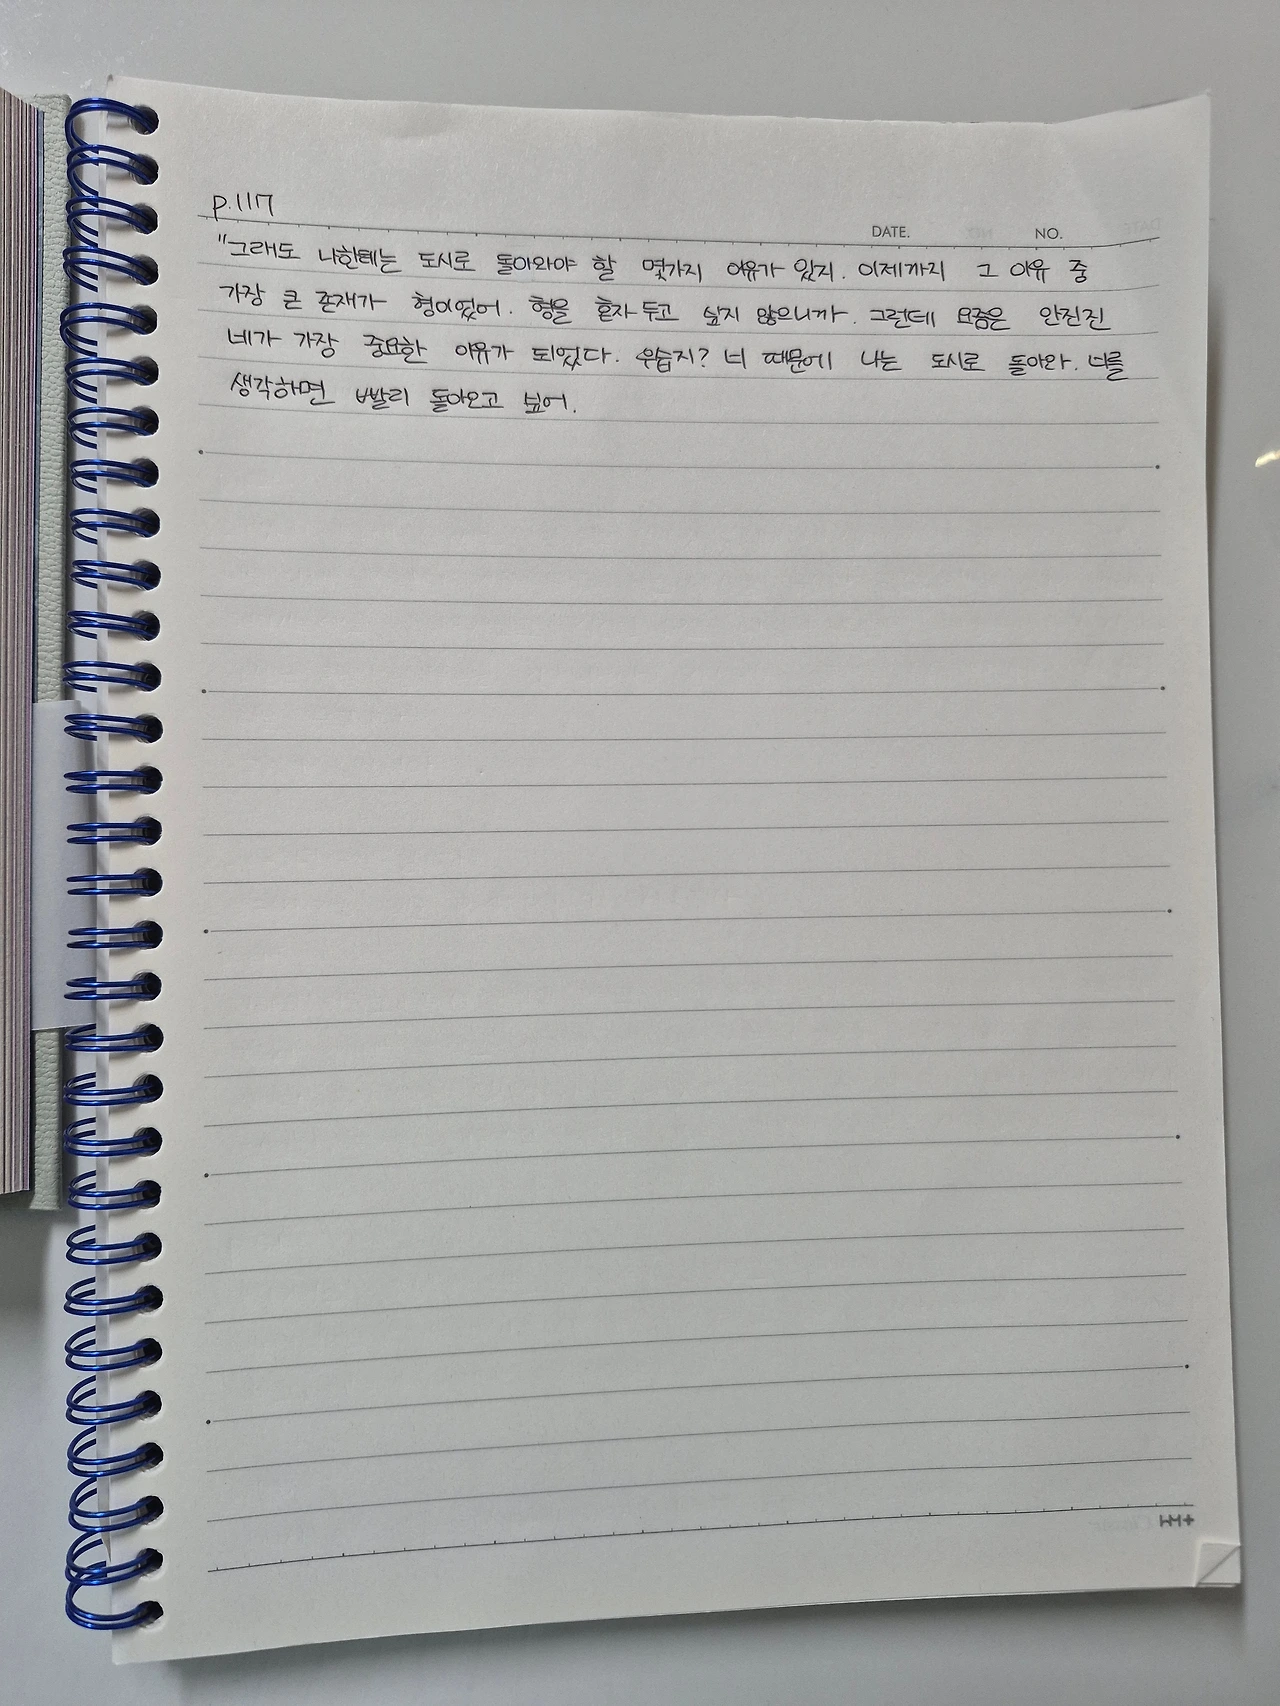 p.117
DATE. NO.
"그래도 나한테는 도시로 돌아와야 할 몇가지 이유가 있지. 이제까지 그 이유 중
가장 큰 존재가 형이었어. 형을 혼자 두고 싶지 않으니까. 그런데 요즘은 안진진
네가 가장 중요한 이유가 되었다. 우습지? 너 때문에 나는 도시로 돌아와. 너를
생각하면 빨리 돌아오고 싶어.